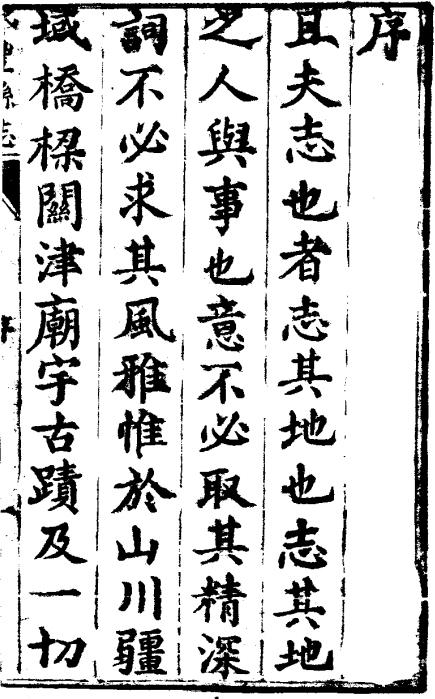 序
且夫志也者志其地也志其地
之人與事也意不必取其精深
詞不必求其風雅惟於山川疆
域橋樑關津廟宇古蹟及一切